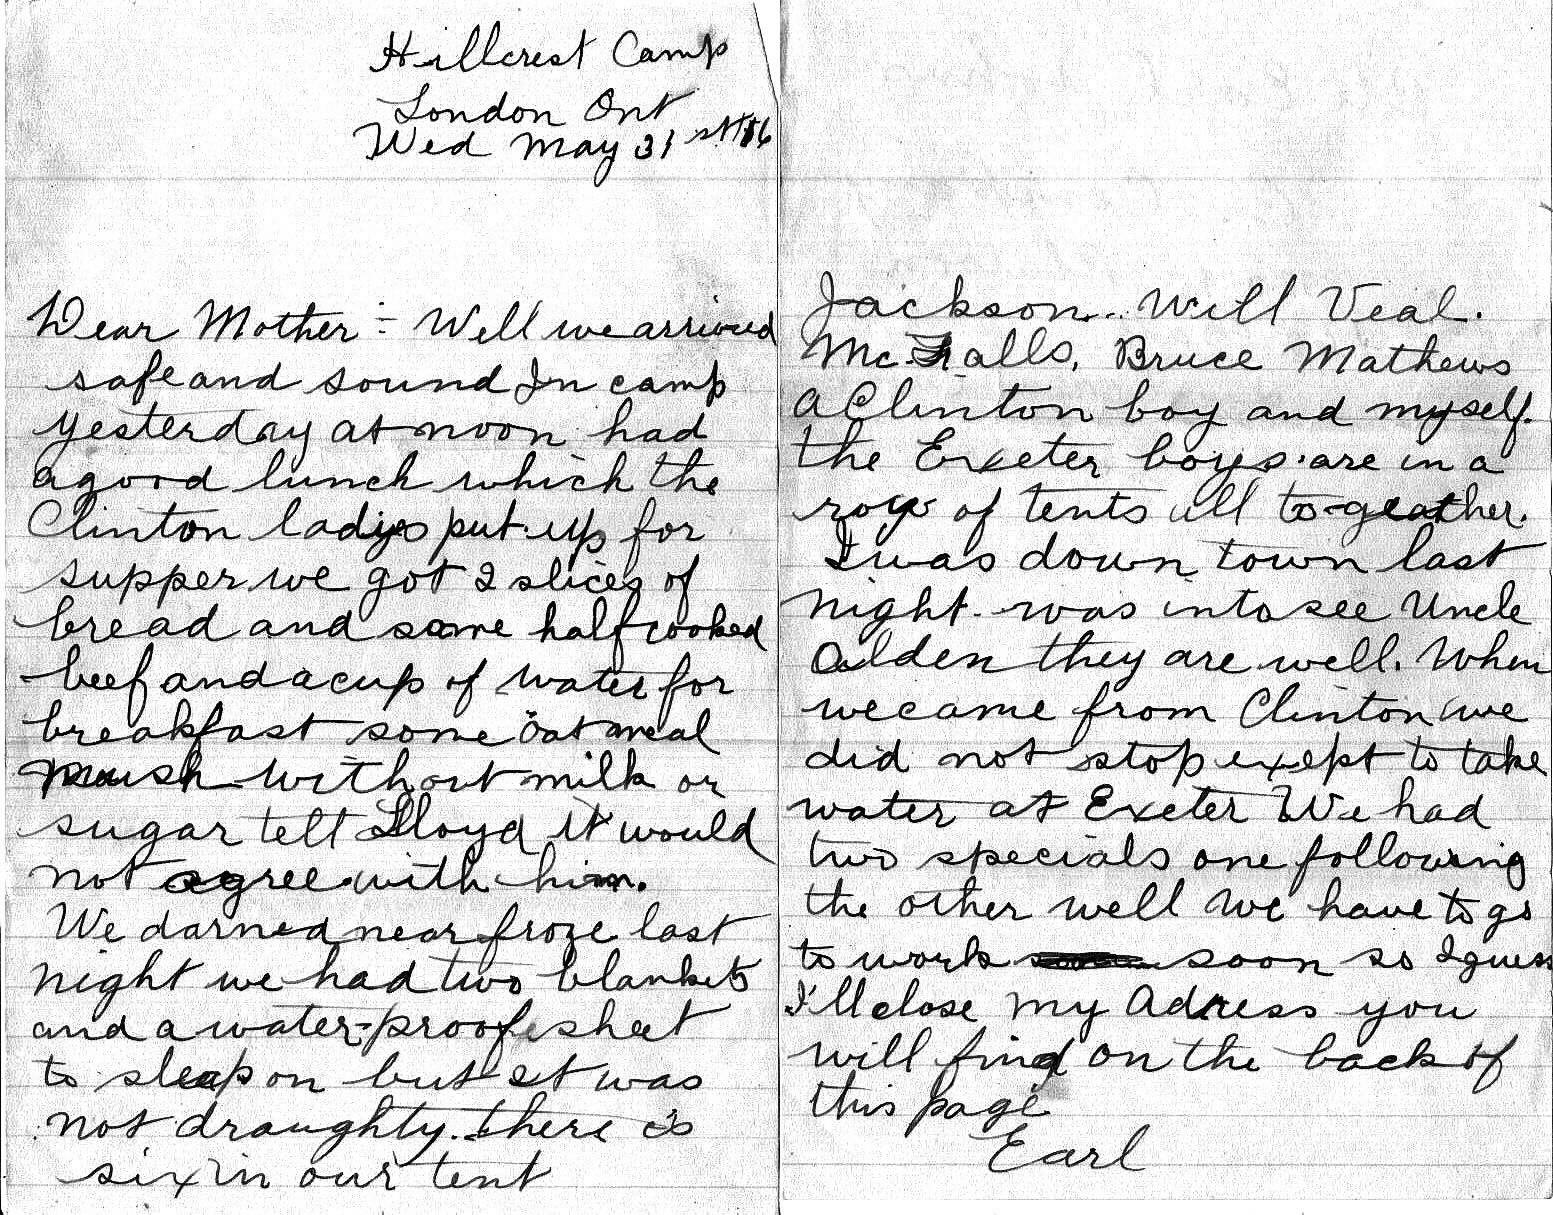 Hillcrest Camp
London Ont
Wed May 31st 16
Dear Mother:- Well we arrived
safe and sound In camp
yesterday at noon had
a good lunch which the
Clinton ladys put up for
supper we got 2 slices of
bread and some half cooked
beef and a cup of water for
breakfast some oat meal
mush without milk or
sugar tell Lloyd it would
not agree with him.
We darned near froze last
night we had two blankets
and a water-proof sheet
to sleep on but it was
not draughty. there is
six in our tent
Jackson.. Will Veal.
Mc Falls, Bruce Mathews
a Clinton boy and myself.
the Exeter boys are in a
row of tents all to-geather.
I was down town last
night was into see Uncle
Alden they are well. When
we came from Clinton we
did not stop exept to take
water at Exeter We had
two specials one following
the other well we have to go
to work soon so I guess
I'll close My Adress you
will find on the back of
this page
Earl